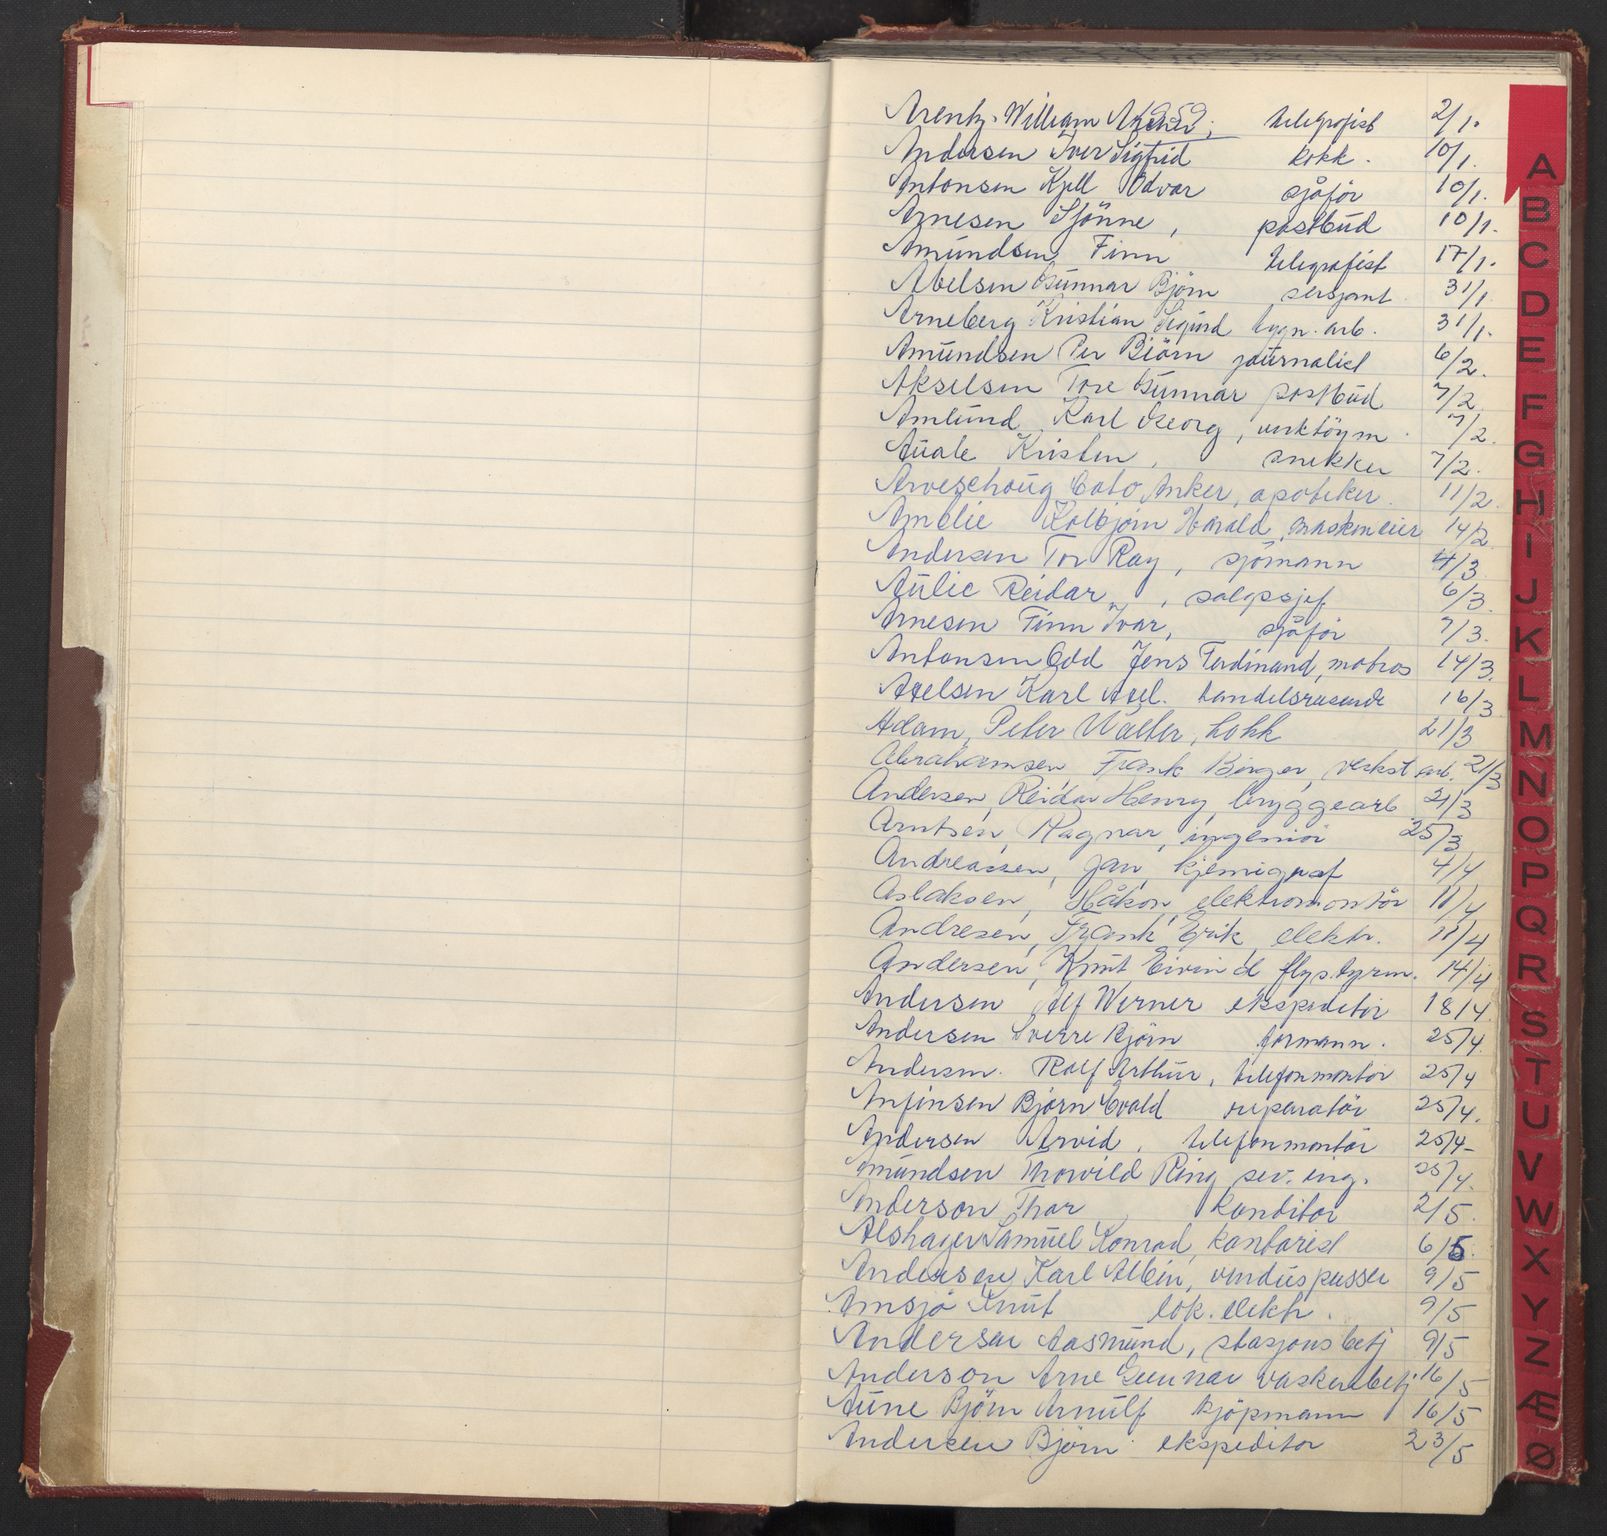 1959
Arentz. William telegrafist 2/1.
Andersen Iver Sigfrid kokk. 10/1.
Antonsen Kjell Odvar sjåför 10/1.
Arnesen Sjönne, postbud 10/1.
Amundsen Finn telegrafist 17/1.
Abelsen Gunnar Björn sersjant 31/1
Arneberg Kristian Sigurd bygn. arb. 31/1.
Amundsen Per Björn journalist 6/2.
Akselsen Tore Gunnar postbud 7/2
Amlund Karl Georg, verktöym. 7/2.
Auale Kristen, snekker 7/2.
Arveschoug Cato Anker, apoteker. 11/2
Amelie Kolbjörn Harald, maskineier 14/2
Andersen Tor Ray, sjömann 4/3
Aulie Reidar, salgssjef 6/3.
Arnesen Finn Ivar, sjåför 7/3.
Antonsen Odd Jens Ferdinand, matros 14/3.
Axelsen Karl Axel. handelsreisende 16/3
Adam, Peter Walter, kokk 21/3
Abrahamsen, Frank Birger, verkst arb. 21/3
Andersen, Reidar Henry, bryggearb 21/3
Arntsen, Ragnar, ingeniör 25/3
Andreassen, Jan, kjemigraf 4/4
Aslaksen, Håkon, elektromontör 11/4
Andresen, Frank Erik, elektr. 11/4
Andersen, Knut Eivind flystyrm. 14/4
Andersen Alf Werner ekspeditör 18/4.
Andersen Sverre Björn formann. 25/4.
Andersen. Rolf Arthur, telefonmontör 25/4
Anfinsen Björn Evald reparatör 25/4.
Andersen Arvid, telefonmontör 25/4-
Amundsen Thorvild Ring siv. ing. 25/4.
Anderson Thor konditor 2/5.
Alshager Samuel Konrad, kontorist 6/5.
Andersen Karl Albin, vinduspusser 9/5
Amsjö Knut lok. elektr. 9/5
Andersen Aasmund, stasjonsbetj 9/5
Anderson Arne Gunnar vaskeribetj 16/5
Aune Björn Arnulf kjöpmann 16/5
Andersen Björn ekspeditör 23/5
A
B
C
D
E
F
G
H
I
J
K
L
M
N
O
P
Q
R
S
T
U
V
W
X
Y
Z
Æ
Ø